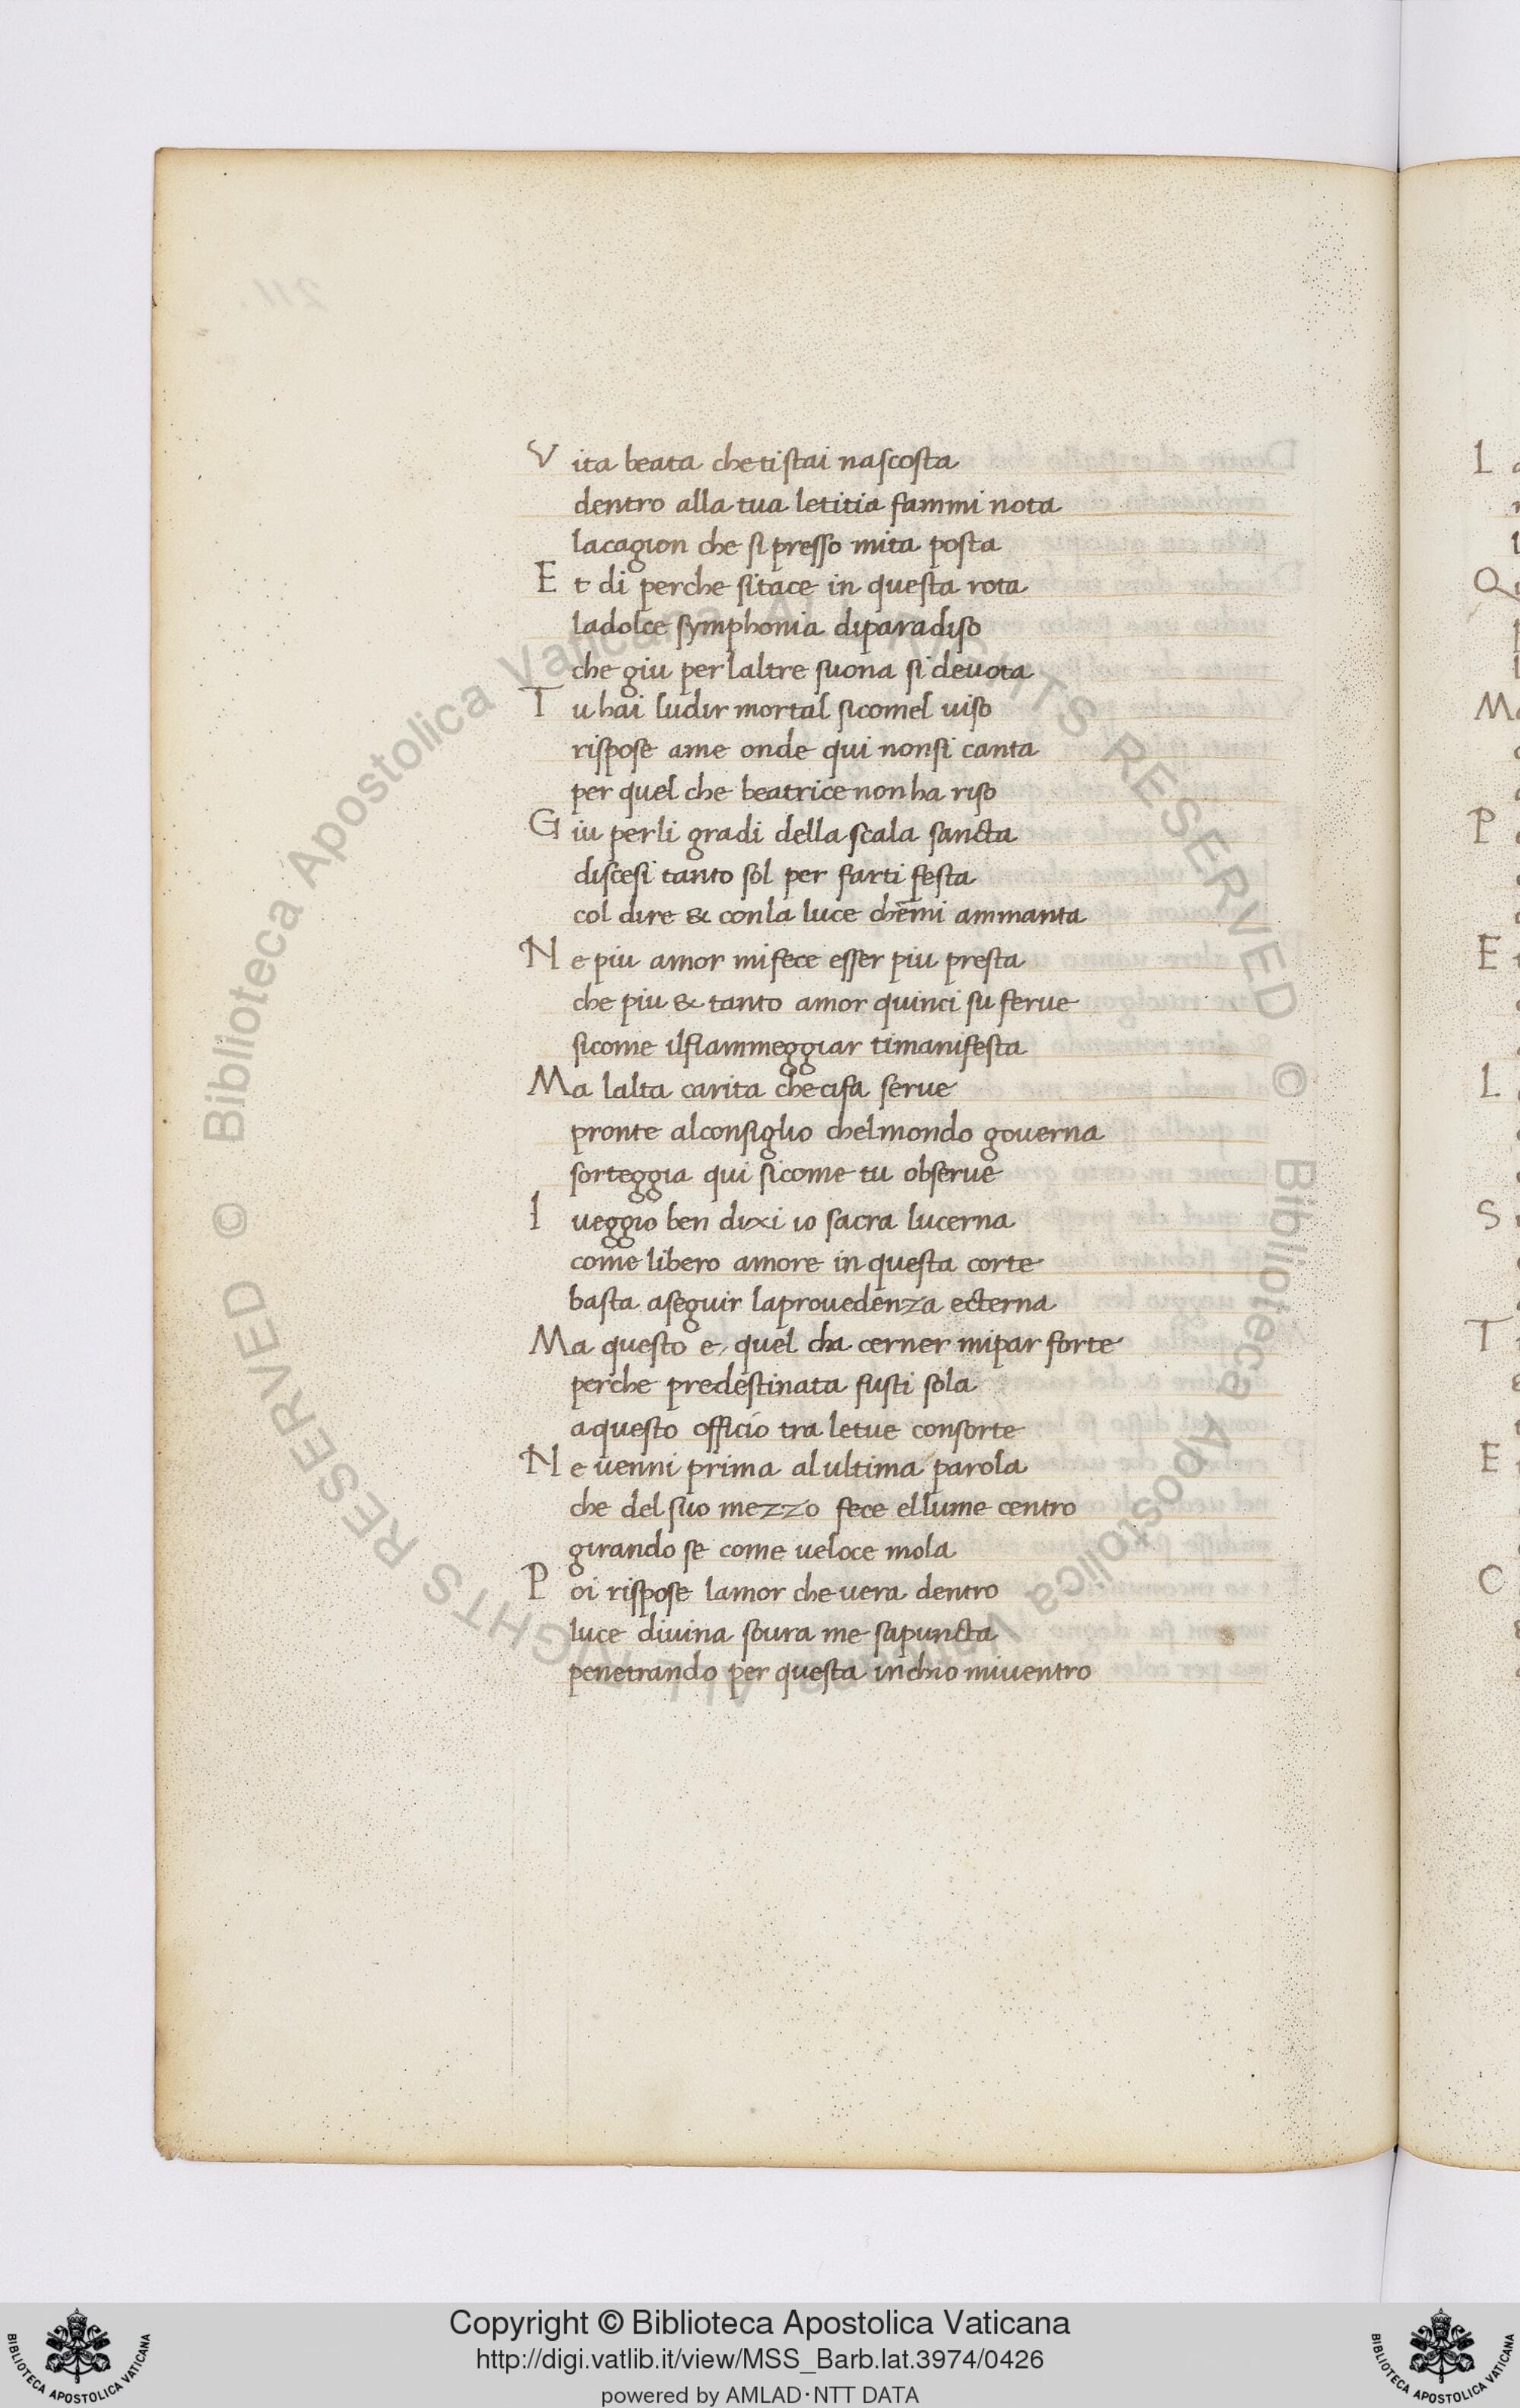 Vita beata che ti stai nascosta
dentro alla tua letitia fammi nota
lacagion che si presso mita posta
Et di perche sitace in questa rota
ladolce symphonia diparadiso
che giu per laltre suona si deuota
Tu hai ludir mortal sicomel uiso
rispose ame onde qui nonsi canta
per quel che beatrice non ha riso
Giu perli gradi della scala sancta
discesi tanto sol per farti festa
col dire & conla luce chēmi ammanta
Ne piu amor mifece esser piu presta
che piu & tanto amor quinci su ferue
sicome ilfiammeggiar timanifesta
Ma lalta carita checifa serue
pronte alconsiglio chelmondo gouerna
sorteggia qui sicome tu obserue
I ueggio ben dixi io sacra lucerna
come libero amore in questa corte
basta aseguir laprouedenza ecterna
Ma questo e, quel cha cerner mipar forte
perche predestinata fusti sola
aquesto officio tra letue consorte
Ne uenni prima alultima parola
che del suo mezzo fece ellume centro
girando se come ueloce mola
Poi rispose lamor che uera dentro
luce diuina soura me sapuncta
penetrando per questa inchio miuentro
L
Q
M
P
E
L
S
T
E
C
© Biblioteca Apostolica Vaticana ALL RIGHTS RESERVED © Biblioteca Apostolica Vaticana ALL RIGHTS RESERVED
BIBLIOTECA APOSTOLICA VATICANA
Copyright © Biblioteca Apostolica Vaticana
http://digi.vatlib.it/view/MSS_Barb.lat.3974/0426
powered by AMLAD·NTT DATA
BIBLIOTECA APOSTOLICA VATICANA